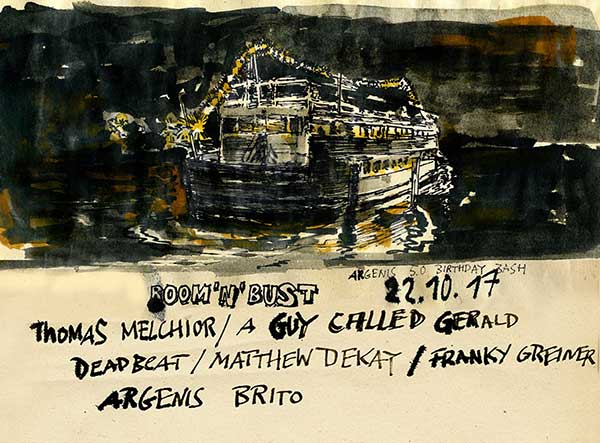 ARGENIS 5.0 BIRTHDAY BASH
ROOM'N'BUST 22.10.17
THOMAS MELCHIOR / A GUY CALLED GERALD
DEADBEAT / MATTHEW DEKAY / FRANKY GREINER
ARGENIS BRITO